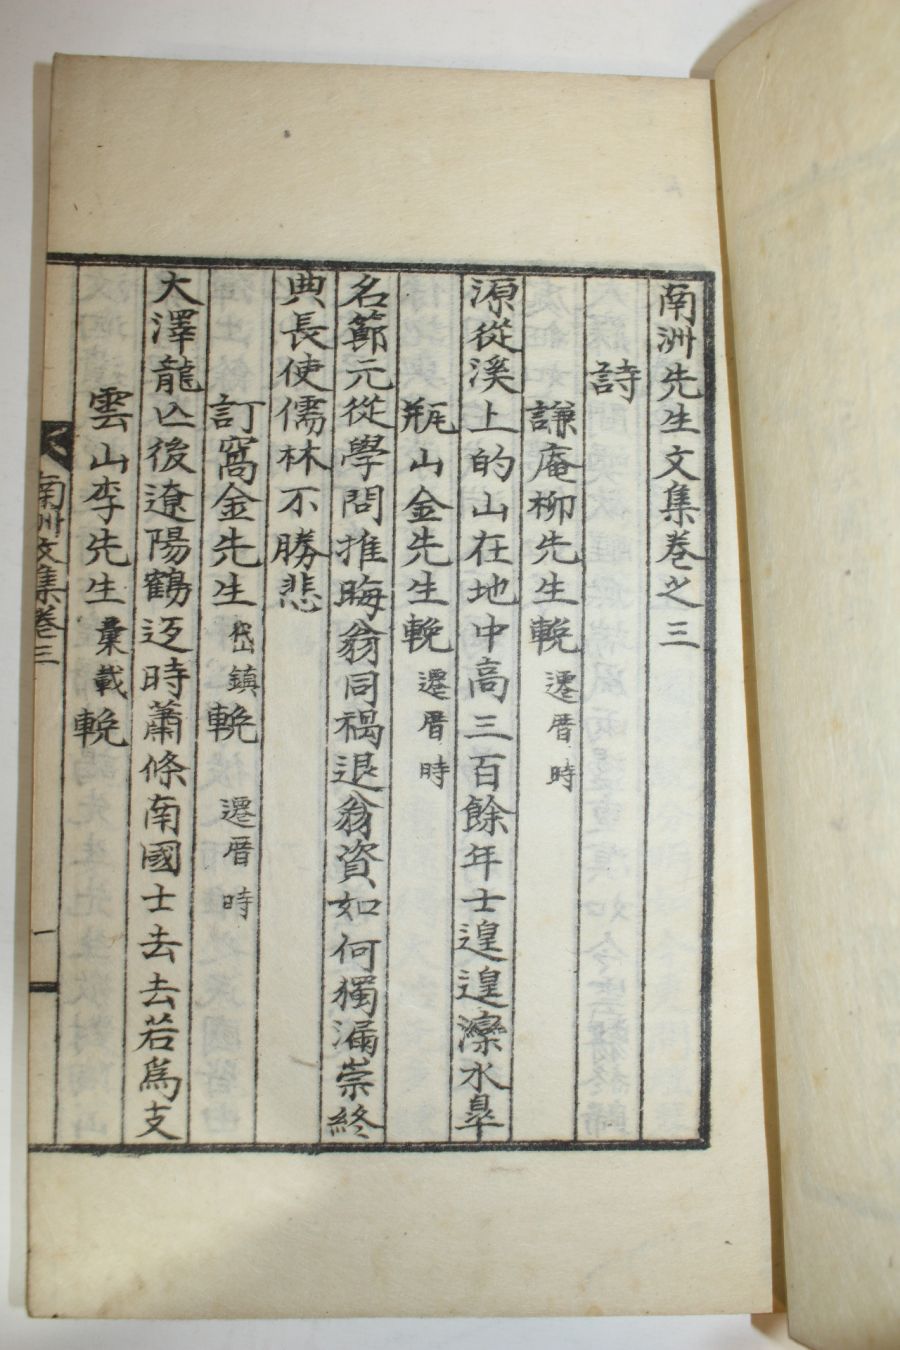 南洲先生文集卷之三
詩
謙庵柳先生輓 遷厝時
源從溪上的山在地中高三百餘年士遑遑灤水皐
瓶山金先生輓 遷厝時
名節元從學問推晦翁同禍退翁資如何獨漏崇終
典長使儒林不勝悲
訂窩金先生 岱鎮 輓 遷厝時
大澤龍亡後遼陽鶴返時蕭條南國士去去若爲支
雲山李先生 彙載 輓
南洲文集卷三 一